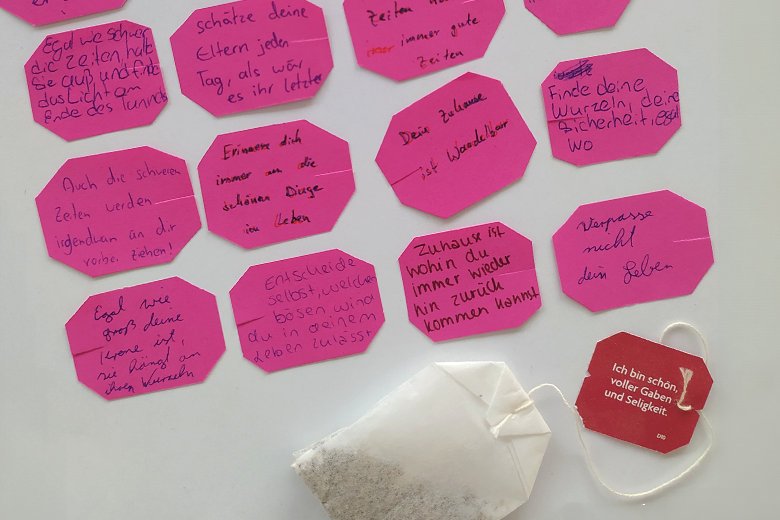 schätze deine
Eltern jeden
Tag, als wär
es ihr letzter
Zeiten
immer gute
Zeiten
Egal wie schwer
die Zeiten, halte
Sie auß und finde
das Licht am
Ende des Tunnels
Finde deine
Wurzeln, deine
Sicherheit, egal
wo
Dein Zuhause
ist Wandelbar
Erinnere dich
immer an die
schönen Dinge
im Leben
Auch die schweren
Zeiten werden
irgendwann an dir
vorbei ziehen!
Verpasse
nicht
dein Leben
Zuhause ist
wohin du
immer wieder
hin zurück
kommen kannst
Entscheide
selbst, welchen
bösen wind
du in deinem
Leben zulässt
Egal wie
groß deine
Krone ist,
sie hängt an
ihren Wurzeln
Ich bin schön,
voller Gaben
und Seligkeit.